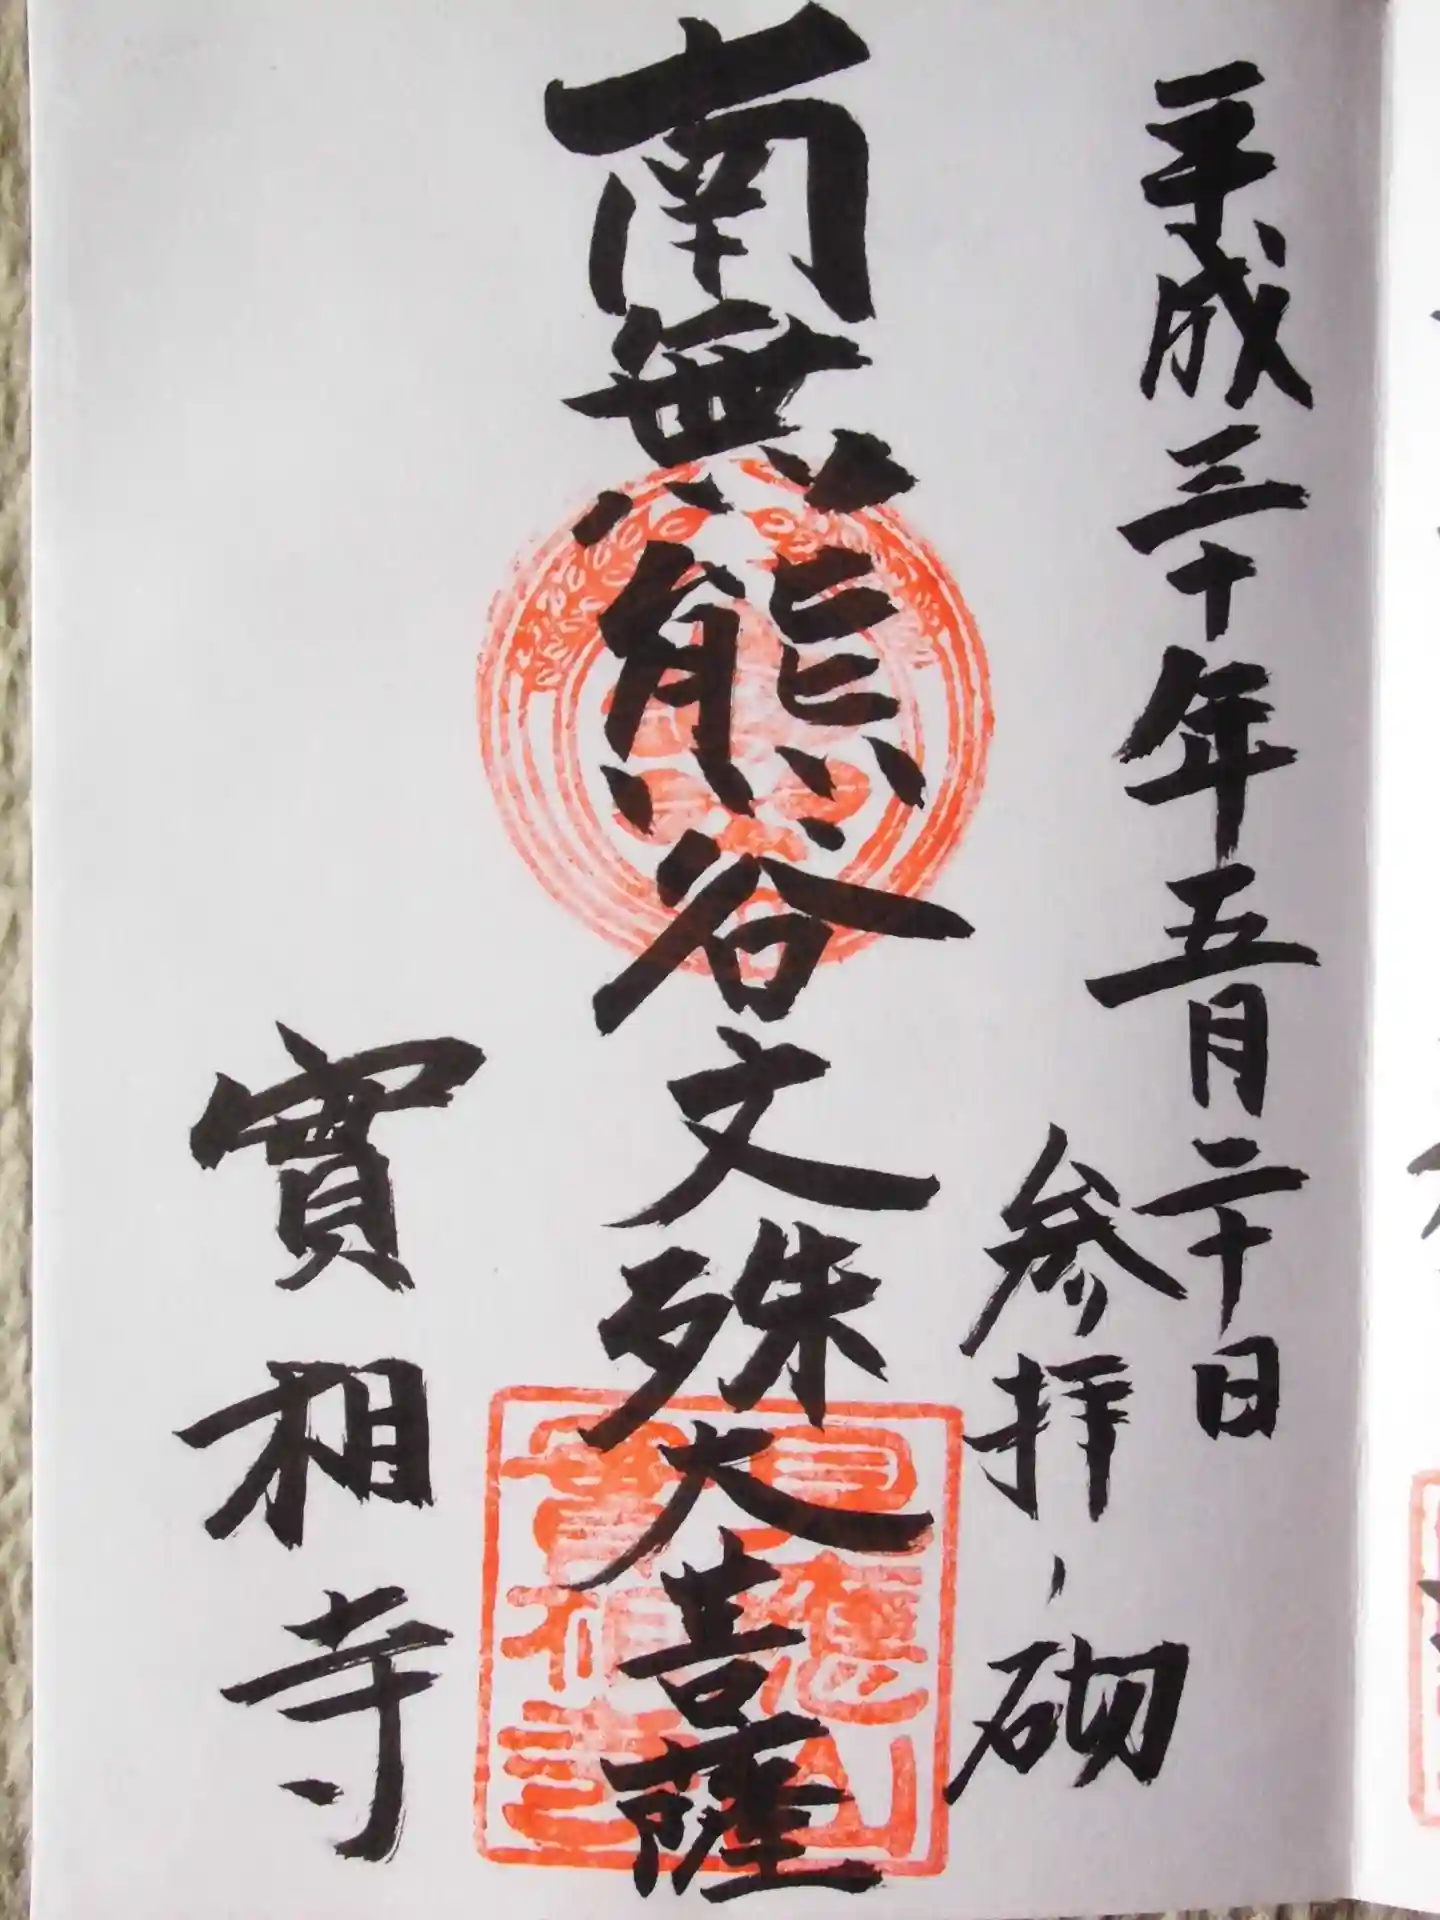 平成三十年五月二十日
参拝ノ砌
南無熊谷文殊大菩薩
實相寺